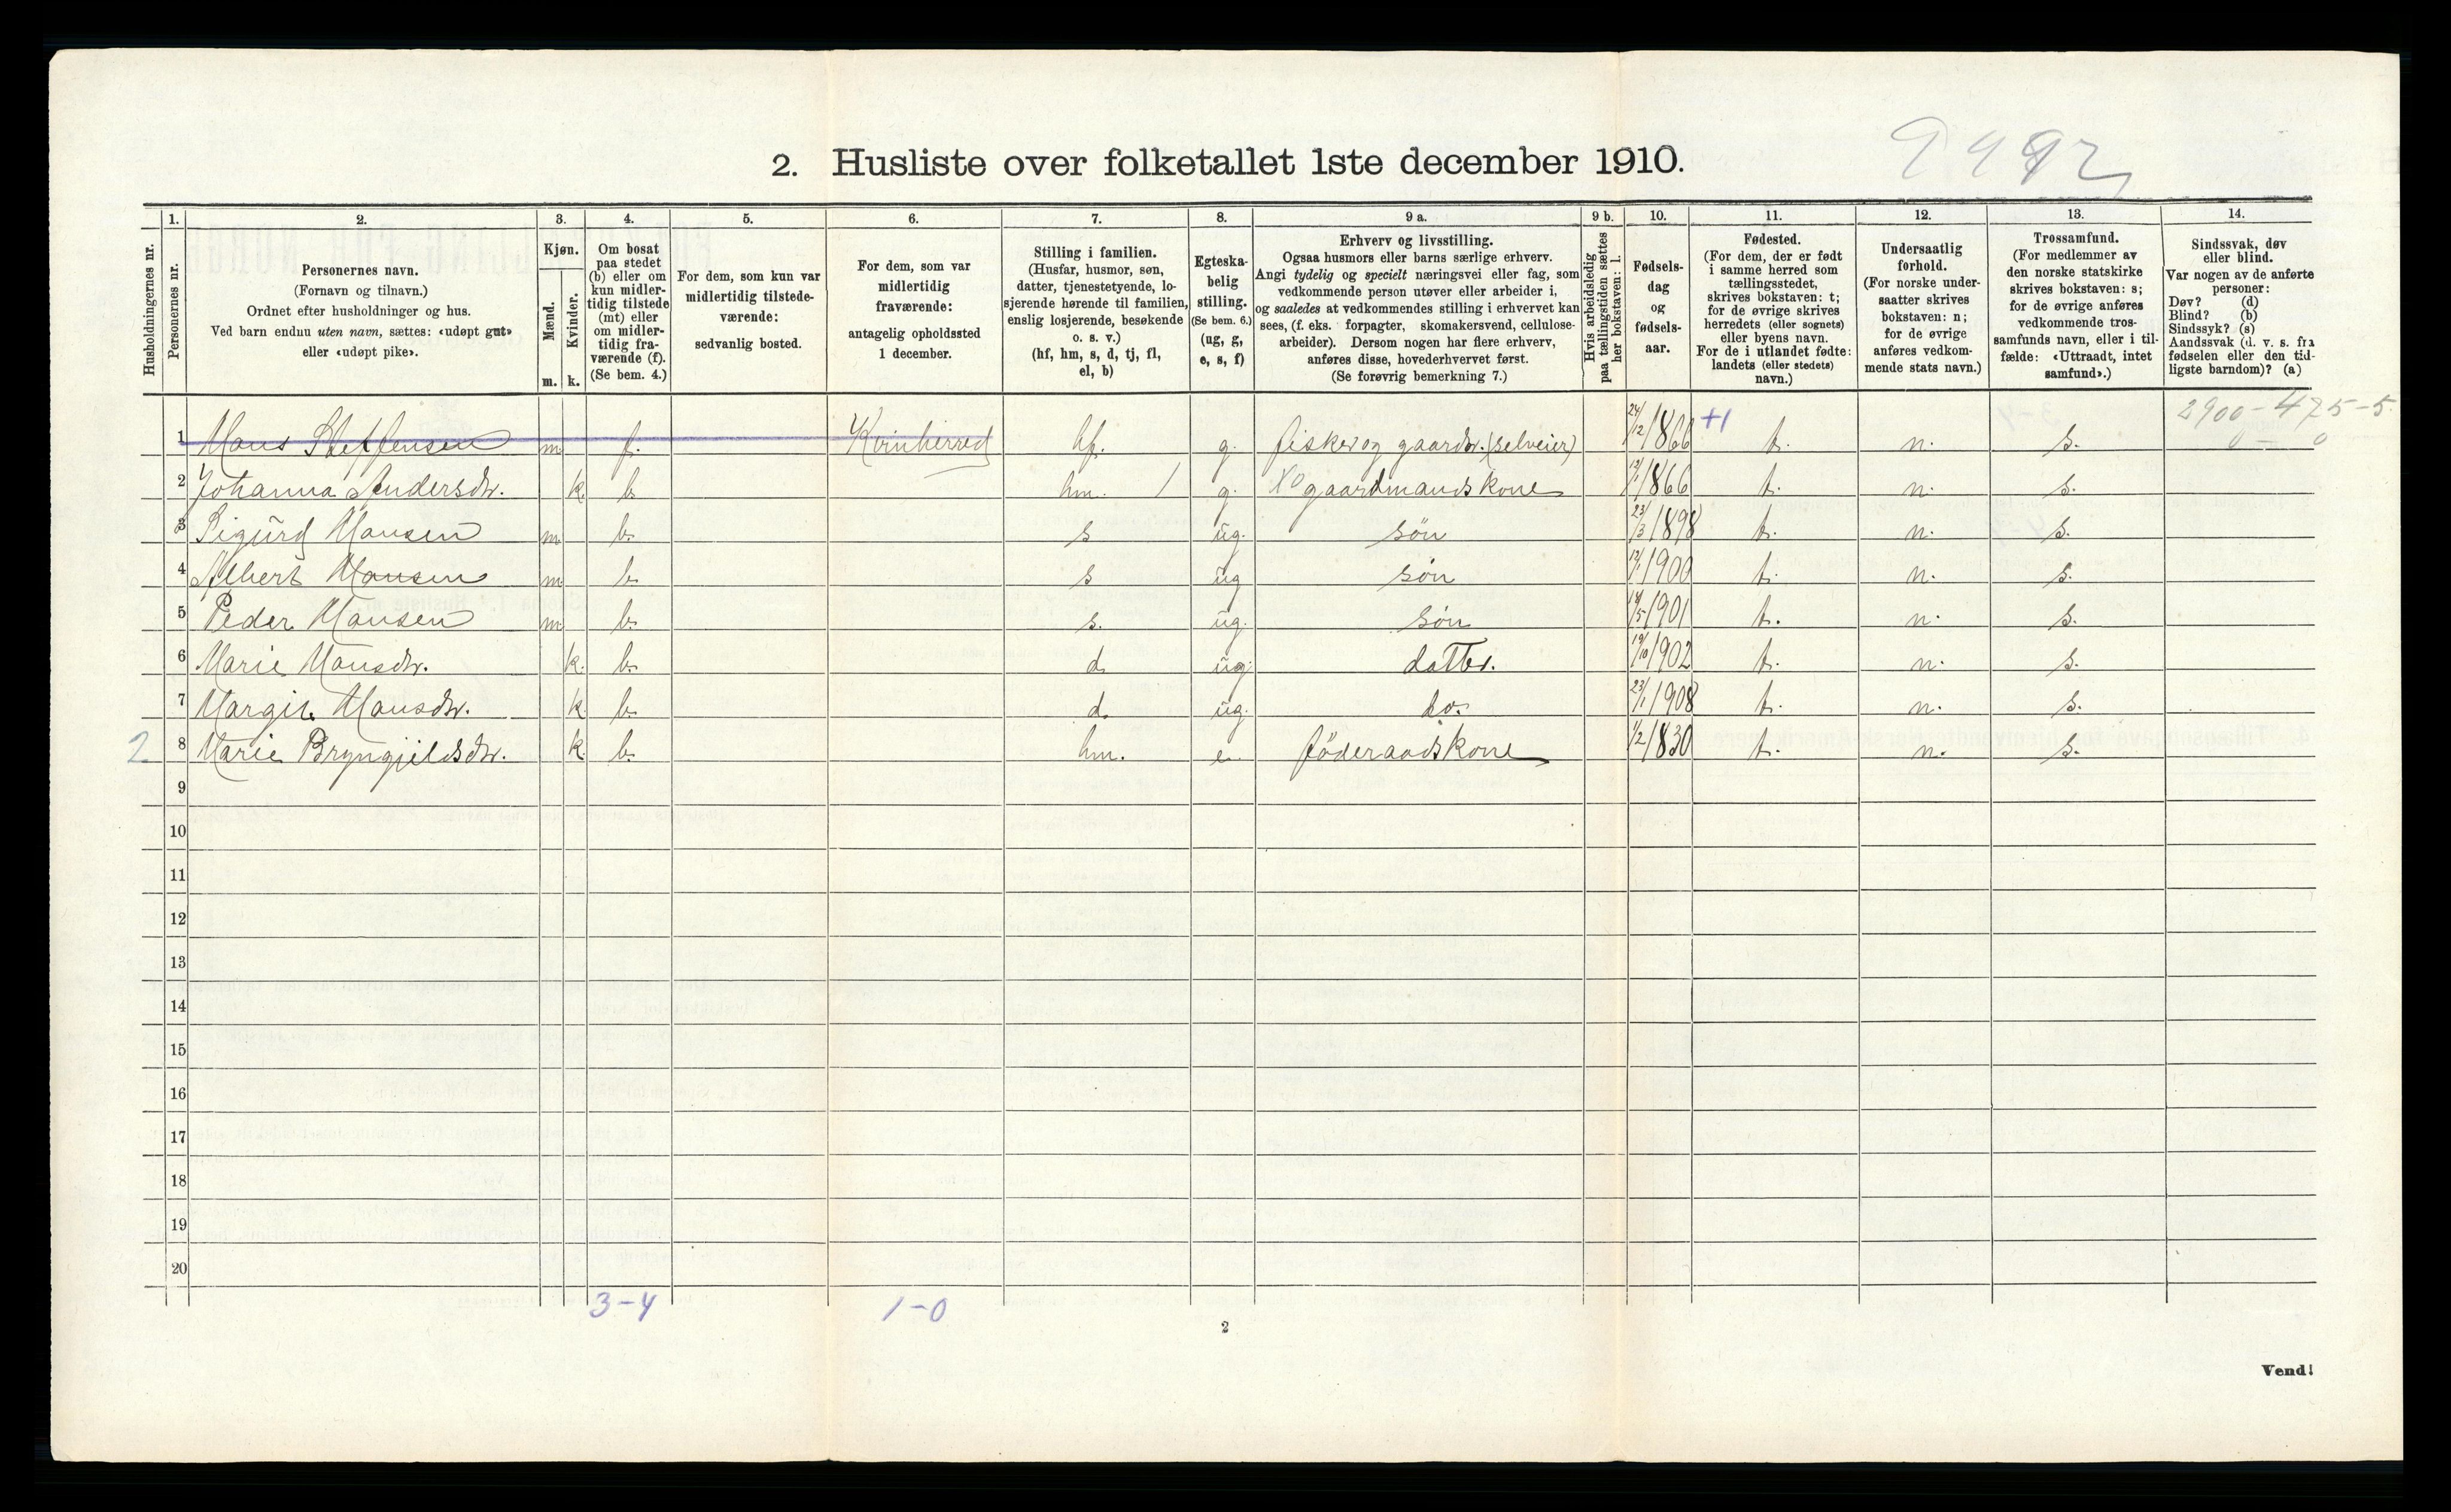 9492
2. Husliste over folketallet 1ste december 1910.
Husholdningernes nr.
1.
Personernes nr.
2.
Personernes navn.
(Fornavn og tilnavn.)
Ordnet efter husholdninger og hus.
Ved barn endnu uten navn, sættes: «udøpt gut»
eller «udøpt pike».
3.
Kjøn.
Mænd.
Kvinder.
m. k.
4.
Om bosat
paa stedet
(b) eller om
kun midler-
tidig tilstede
(mt) eller
om midler-
tidig fra-
værende (f).
(Se bem. 4.)
5.
For dem, som kun var
midlertidig tilstede-
værende:
sedvanlig bosted.
6.
For dem, som var
midlertidig
fraværende:
antagelig opholdssted
1 december.
7.
Stilling i familien.
(Husfar, husmor, søn,
datter, tjenestetyende, lo-
sjerende hørende til familien,
enslig losjerende, besøkende
o. s. v.)
(hf, hm, s, d, tj, fl,
el, b)
8.
Egteska-
belig
stilling.
(Se bem. 6.)
(ug, g,
e, s, f)
9 a.
Erhverv og livsstilling.
Ogsaa husmors eller barns særlige erhverv.
Angi tydelig og specielt næringsvei eller fag, som
vedkommende person utøver eller arbeider i,
og saaledes at vedkommendes stilling i erhvervet kan
sees, (f. eks. forpagter, skomakersvend, cellulose-
arbeider). Dersom nogen har flere erhverv,
anføres disse, hovederhvervet først.
(Se forøvrig bemerkning 7.)
9 b.
Hvis arbeidsledig
paa tællingstiden sættes
her bokstaven: l.
10.
Fødsels-
dag
og
fødsels-
aar.
11.
Fødested.
(For dem, der er født
i samme herred som
tællingsstedet,
skrives bokstaven: t;
for de øvrige skrives
herredets (eller sognets)
eller byens navn.
For de i utlandet fødte:
landets (eller stedets)
navn.)
12.
Undersaatlig
forhold.
(For norske under-
saatter skrives
bokstaven: n;
for de øvrige
anføres vedkom-
mende stats navn.)
13.
Trossamfund.
(For medlemmer av
den norske statskirke
skrives bokstaven: s;
for de øvrige anføres
vedkommende tros-
samfunds navn, eller i til-
fælde: «Uttraadt, intet
samfund».)
14.
Sindssvak, døv
eller blind.
Var nogen av de anførte
personer:
Døv? (d)
Blind? (b)
Sindssyk? (s)
Aandssvak (d. v. s. fra
fødselen eller den tid-
ligste barndom)? (a)
2900-475-5.
1 Hans Steffensen m f. Kvinherred hf. g. fisker og gaardbr. (selveier) 24/12 1866 +1 t. n. s. 0 - 0
2 Johanna Andersdtr. k. b. hm. / g. X0 gaardmandskone 1866 t. n. s.
3 Sigurd Hansen m b. s ug. søn 23/3 1898 t. n. s.
4 Albert Hansen m b. s ug søn 12/1 1900 t. n. s.
5 Peder Hansen m b. s. ug. søn 14/5 1901 t. n. s.
6 Marie Hansdtr. k. b. d. ug. datter. 19/10 1902 t. n. s.
7 Margit Hansdtr. k. b. d. ug. do. 23/1 1908 t. n. s.
2 8 Marie Bryngjeldsdtr. k b. hm. e. føderaadskone 1/2 1830 t. n. s.
9
10
11
12
13
14
15
16
17
18
19
20
3-4 1-0
2
Vend!